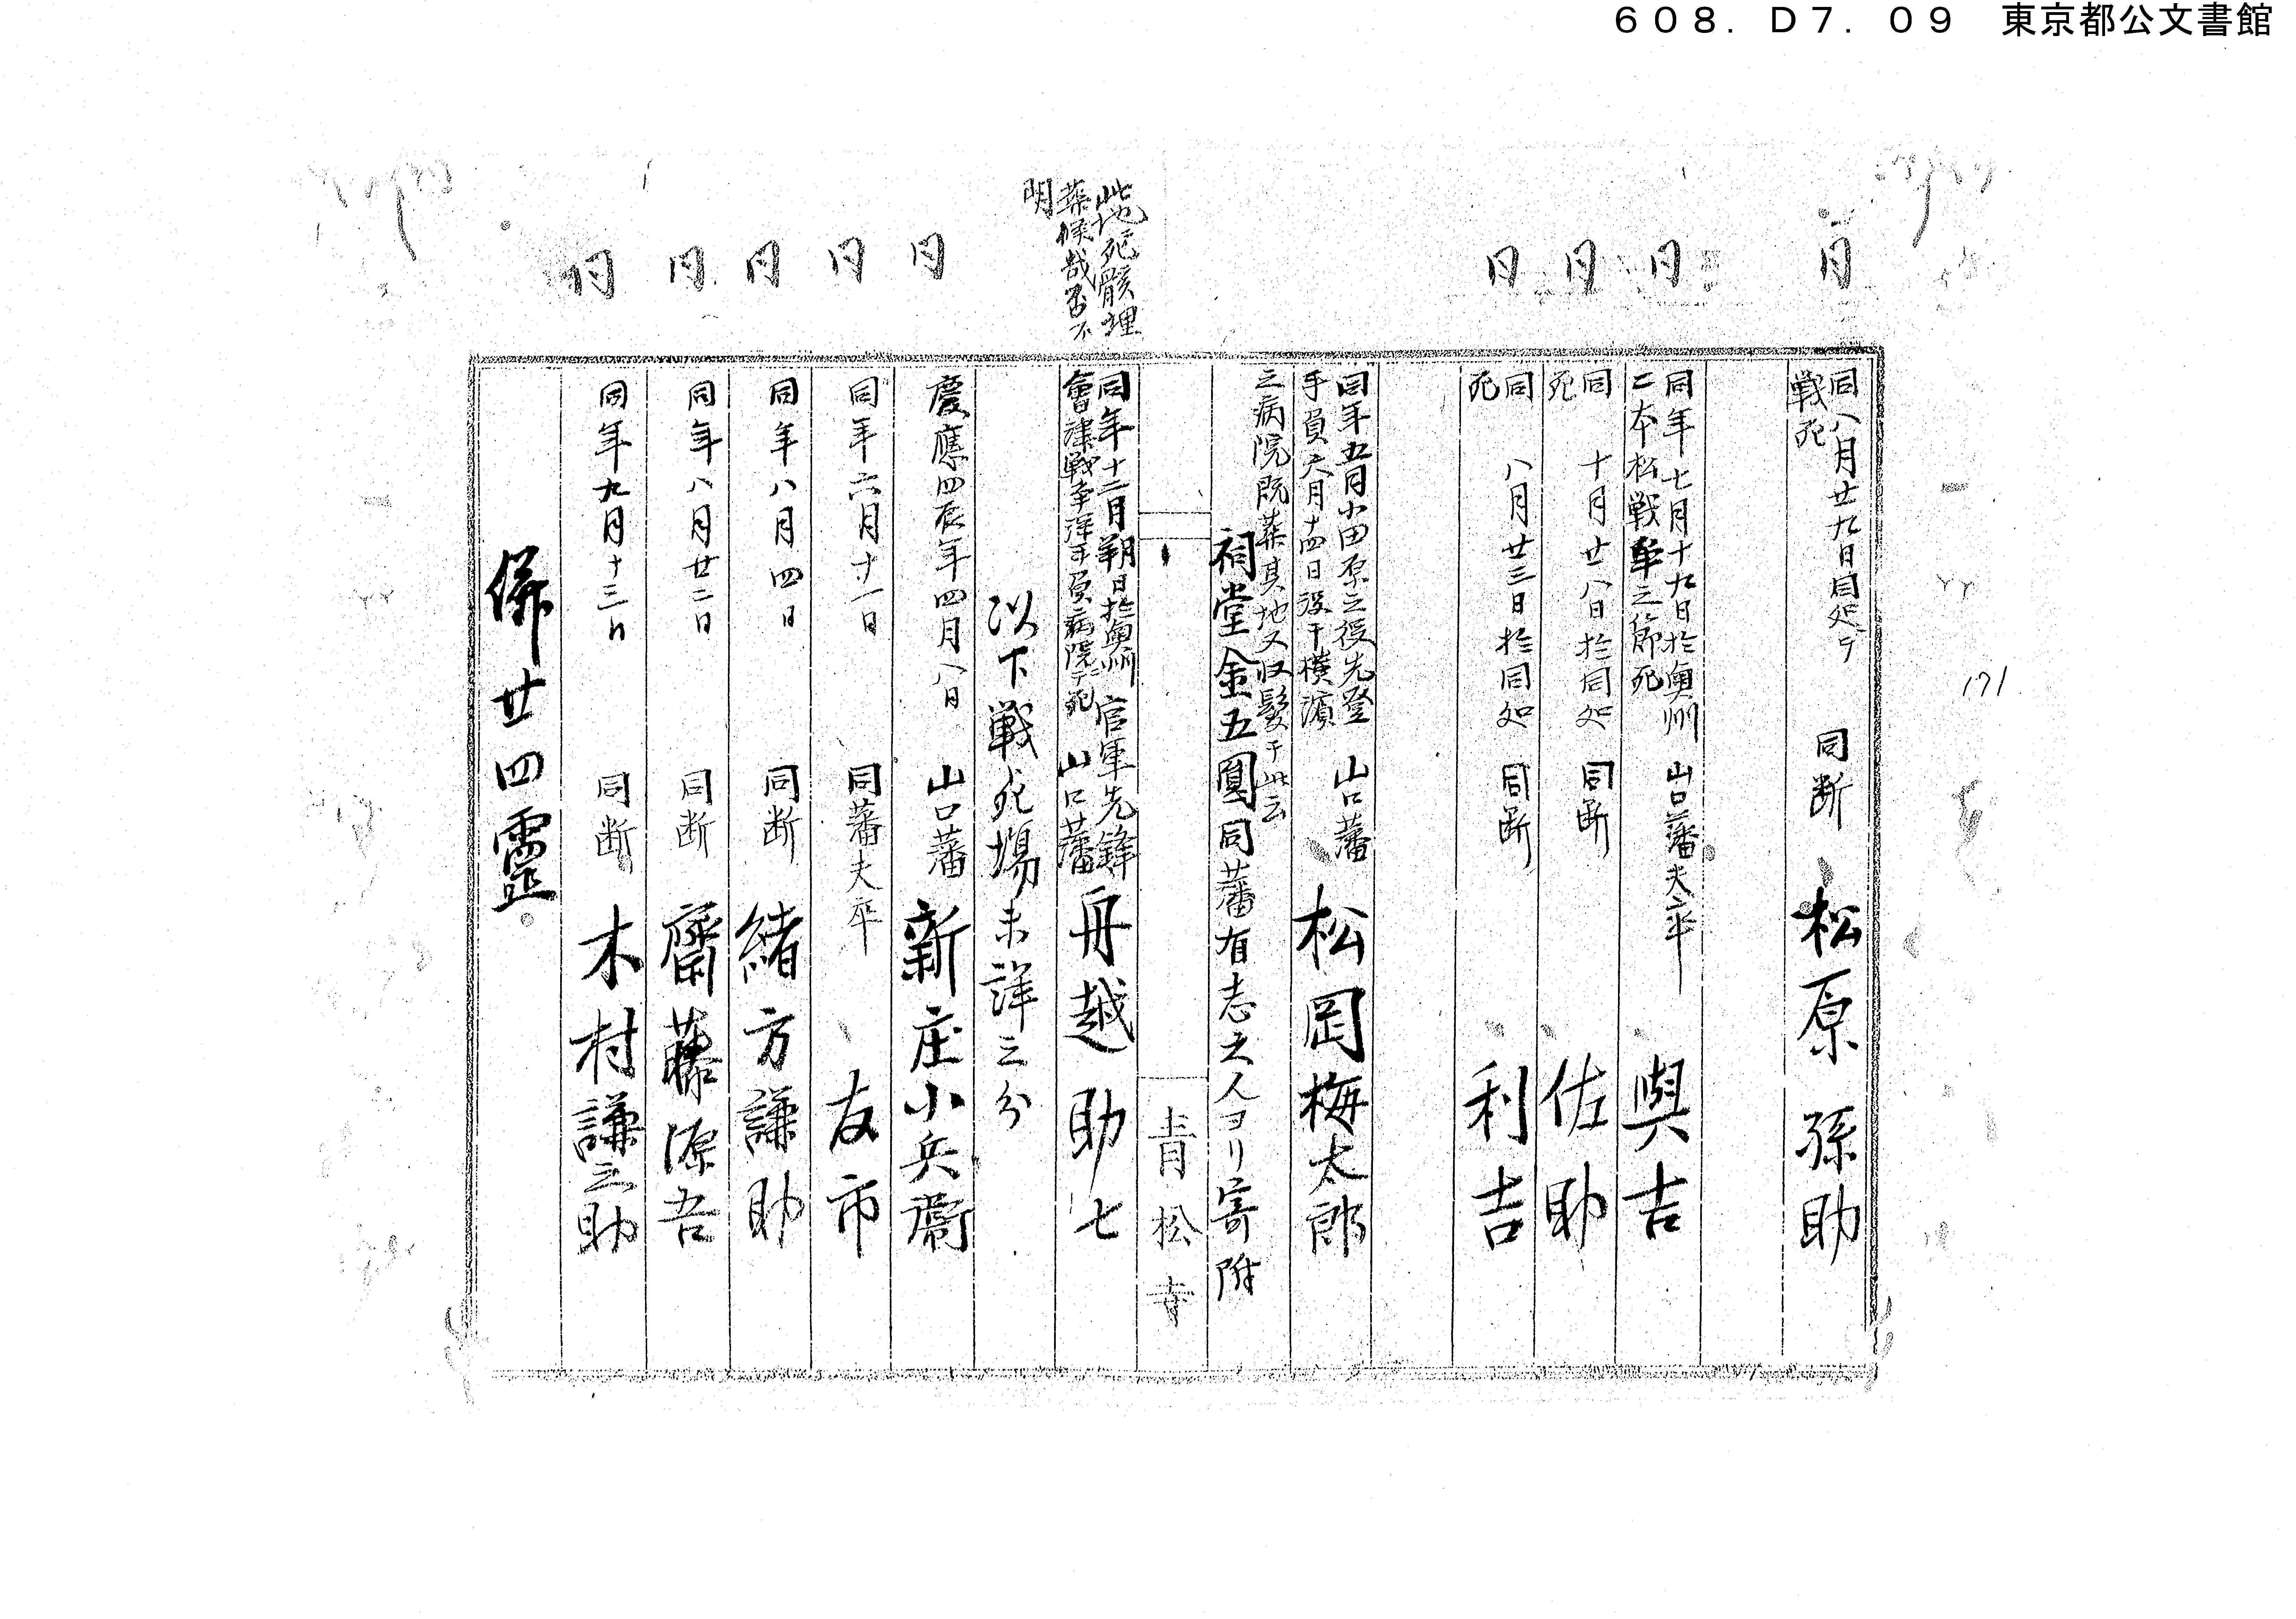 608. D7. 09 東京都公文書館
同
同八月廿九日同処ニテ
戦死
同断
松原孫助
171
同
同年七月十九日於奥州
二本松戦争之節死
山口藩夫卒
與吉
同
同十月廿八日於同処
死
同断
佐助
同
同八月廿三日於同処
死
同断
利吉
同年五月小田原之役先登
手負六月十四日没于横濱
之病院既葬其地又収髪于此云
山口藩
松岡梅太郎
祠堂金五圓同藩有志之人ヨリ寄附
青松寺
此地死骸埋
葬候哉否不
明
同年十二月朔日於奥州
會津戦争深手負病院ニテ死
官軍先鋒
山口藩
舟越助七
以下戦死場未詳之分
同
慶應四辰年四月八日
山口藩
新庄小兵衛
同
同年六月十一日
同藩夫卒
友市
同
同年八月四日
同断
緒方謙助
同
同年八月廿二日
同断
齋藤源吾
同
同年九月十三日
同断
木村謙之助
併廿四霊